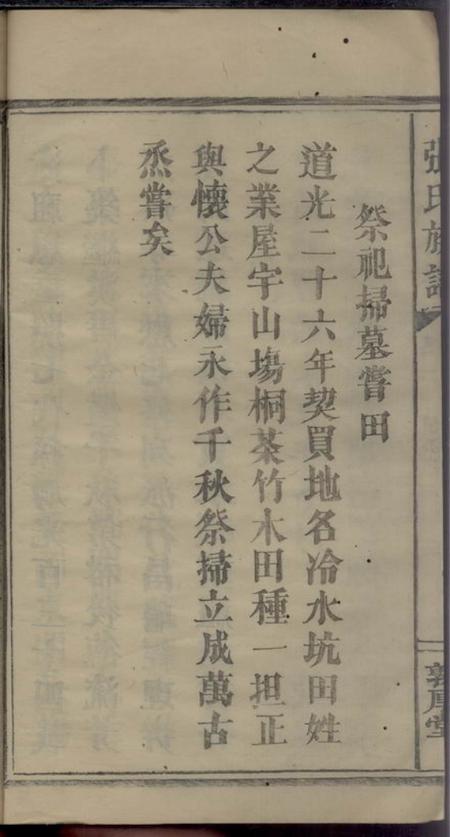 張氏族譜
敦厚堂
祭祀掃墓嘗田
道光二十六年契買地名冷水坑田姓
之業屋宇山塲桐茶竹木田種一担正
與懷公夫婦永作千秋祭掃立成萬古
烝嘗矣